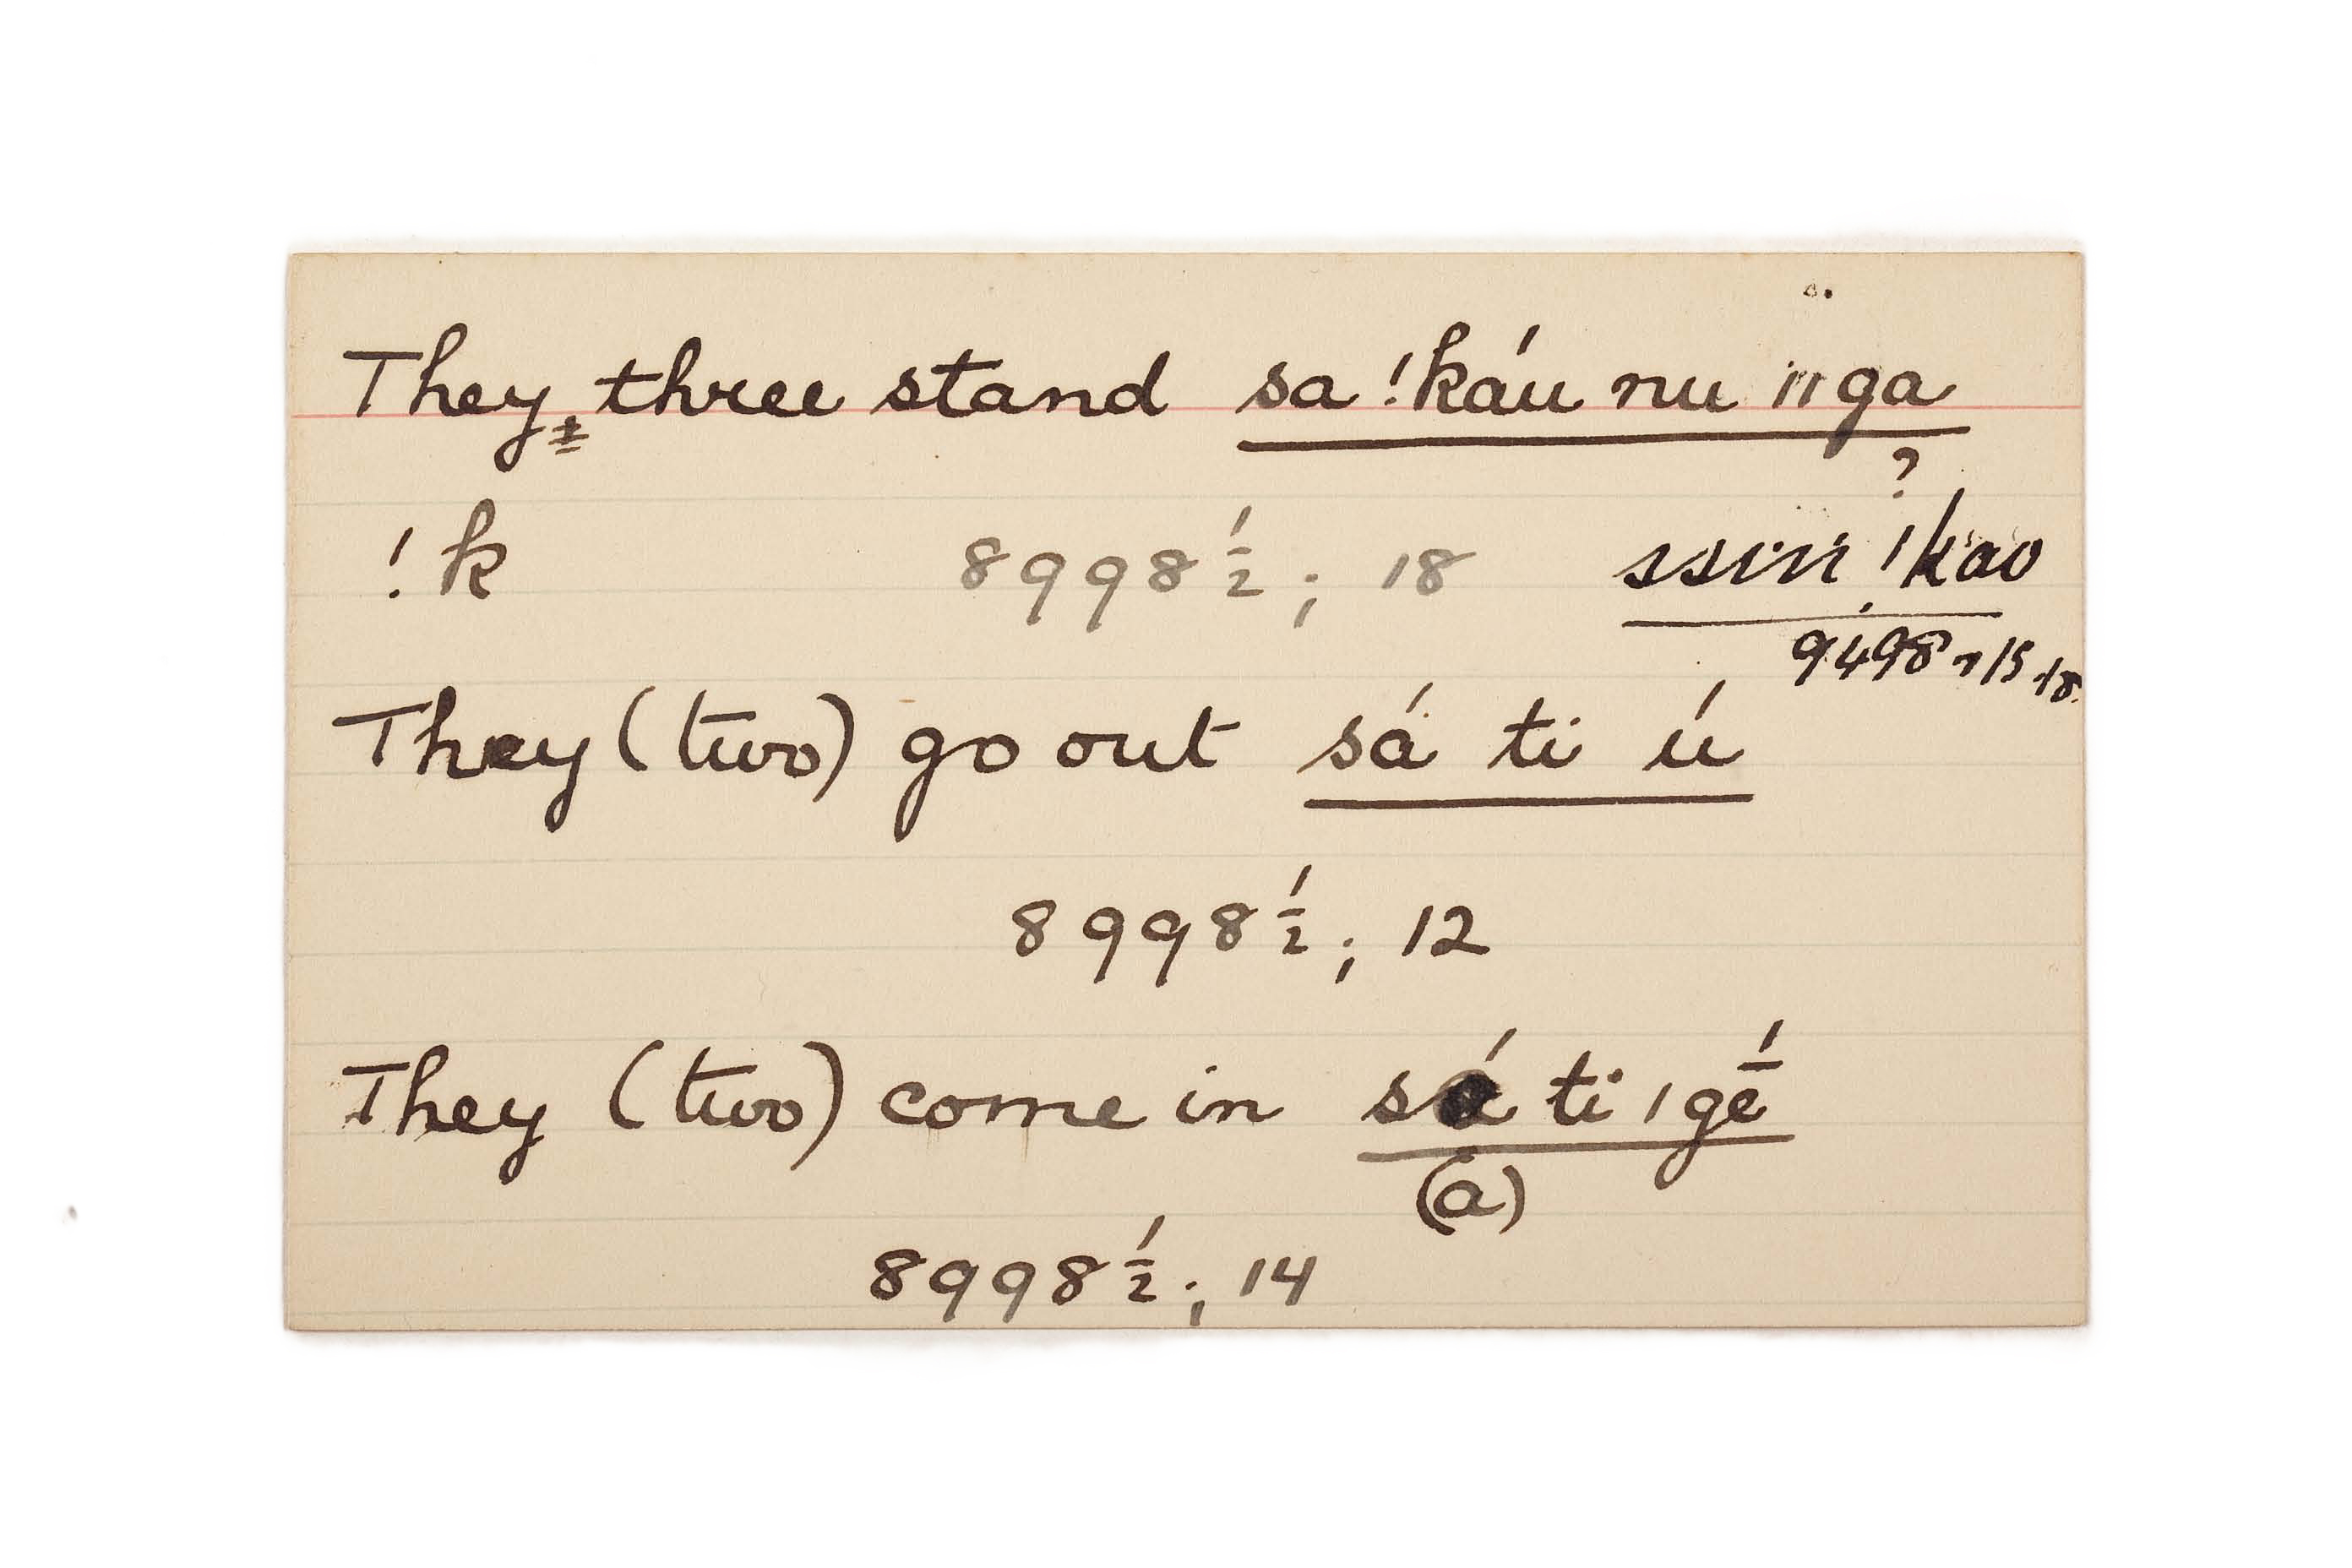 They, three stand sa !káu nu ǁga
?
!k 8998½; 18 ssin !kao
9498
They (two) go out sá ti ú
8998½; 12
They (two) come in sá ti ǀgé̄
(a)
8998½; 14